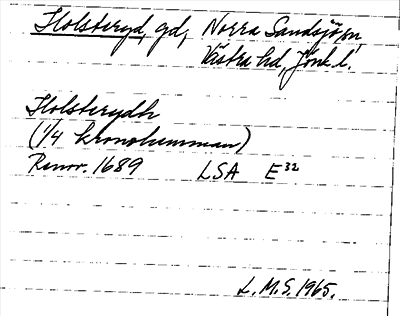 Holsteryd, gd, Norra Sandsjö sn,
Västra hd, Jönk. l.
Holsterydh
(1/4 kronohemman)
Renov. 1689 LSA E 32
L.M.S. 1965.